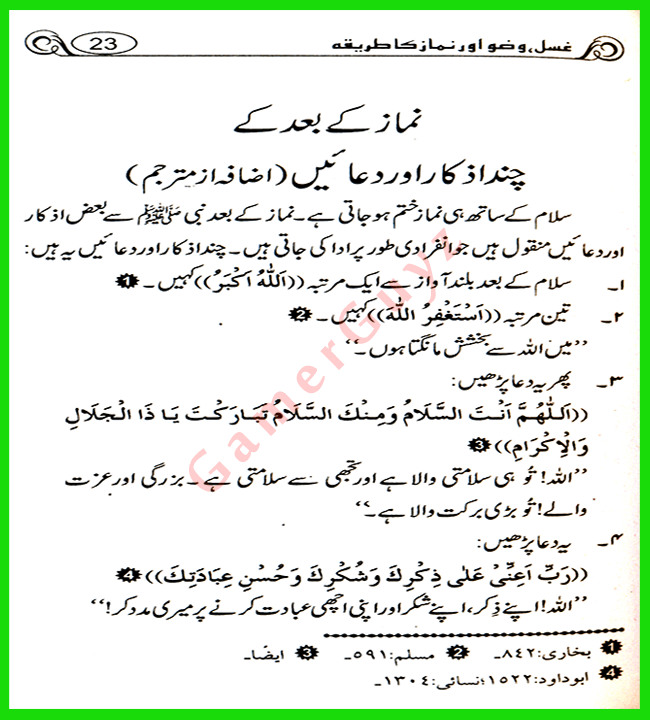 غسل، وضو اور نماز کا طریقہ 23
نماز کے بعد کے
چند اذکار اور دعائیں (اضافہ از مترجم)
سلام کے ساتھ ہی نماز ختم ہو جاتی ہے۔ نماز کے بعد نبی ﷺ سے بعض اذکار
اور دعائیں منقول ہیں جو انفرادی طور پر ادا کی جاتی ہیں۔ چند اذکار اور دعائیں یہ ہیں:
۱۔ سلام کے بعد بلند آواز سے ایک مرتبہ ((اَللّٰهُ اَكْبَرُ)) کہیں۔ ❶
۲۔ تین مرتبہ ((اَسْتَغْفِرُ اللّٰهَ)) کہیں۔ ❷
’’میں اللہ سے بخشش مانگتا ہوں۔‘‘
۳۔ پھر یہ دعا پڑھیں:
((اَللّٰهُمَّ اَنْتَ السَّلَامُ وَمِنْكَ السَّلَامُ تَبَارَكْتَ يَا ذَا الْجَلَالِ
وَالْاِكْرَامِ)) ❸
’’اللہ! تُو ہی سلامتی والا ہے اور تجھی سے سلامتی ہے۔ بزرگی اور عزت
والے! تُو بڑی برکت والا ہے۔‘‘
۴۔ یہ دعا پڑھیں:
((رَبِّ اَعِنِّیْ عَلٰی ذِكْرِكَ وَشُكْرِكَ وَحُسْنِ عِبَادَتِكَ)) ❹
’’اللہ! اپنے ذِکر، اپنے شکر اور اپنی اچھی عبادت کرنے پر میری مدد کر!‘‘
❶ بخاری: ۸۴۲۔ ❷ مسلم: ۵۹۱۔ ❸ ایضًا۔
❹ ابوداود: ۱۵۲۲؛ نسائی: ۱۳۰۴۔
GamerGuyz